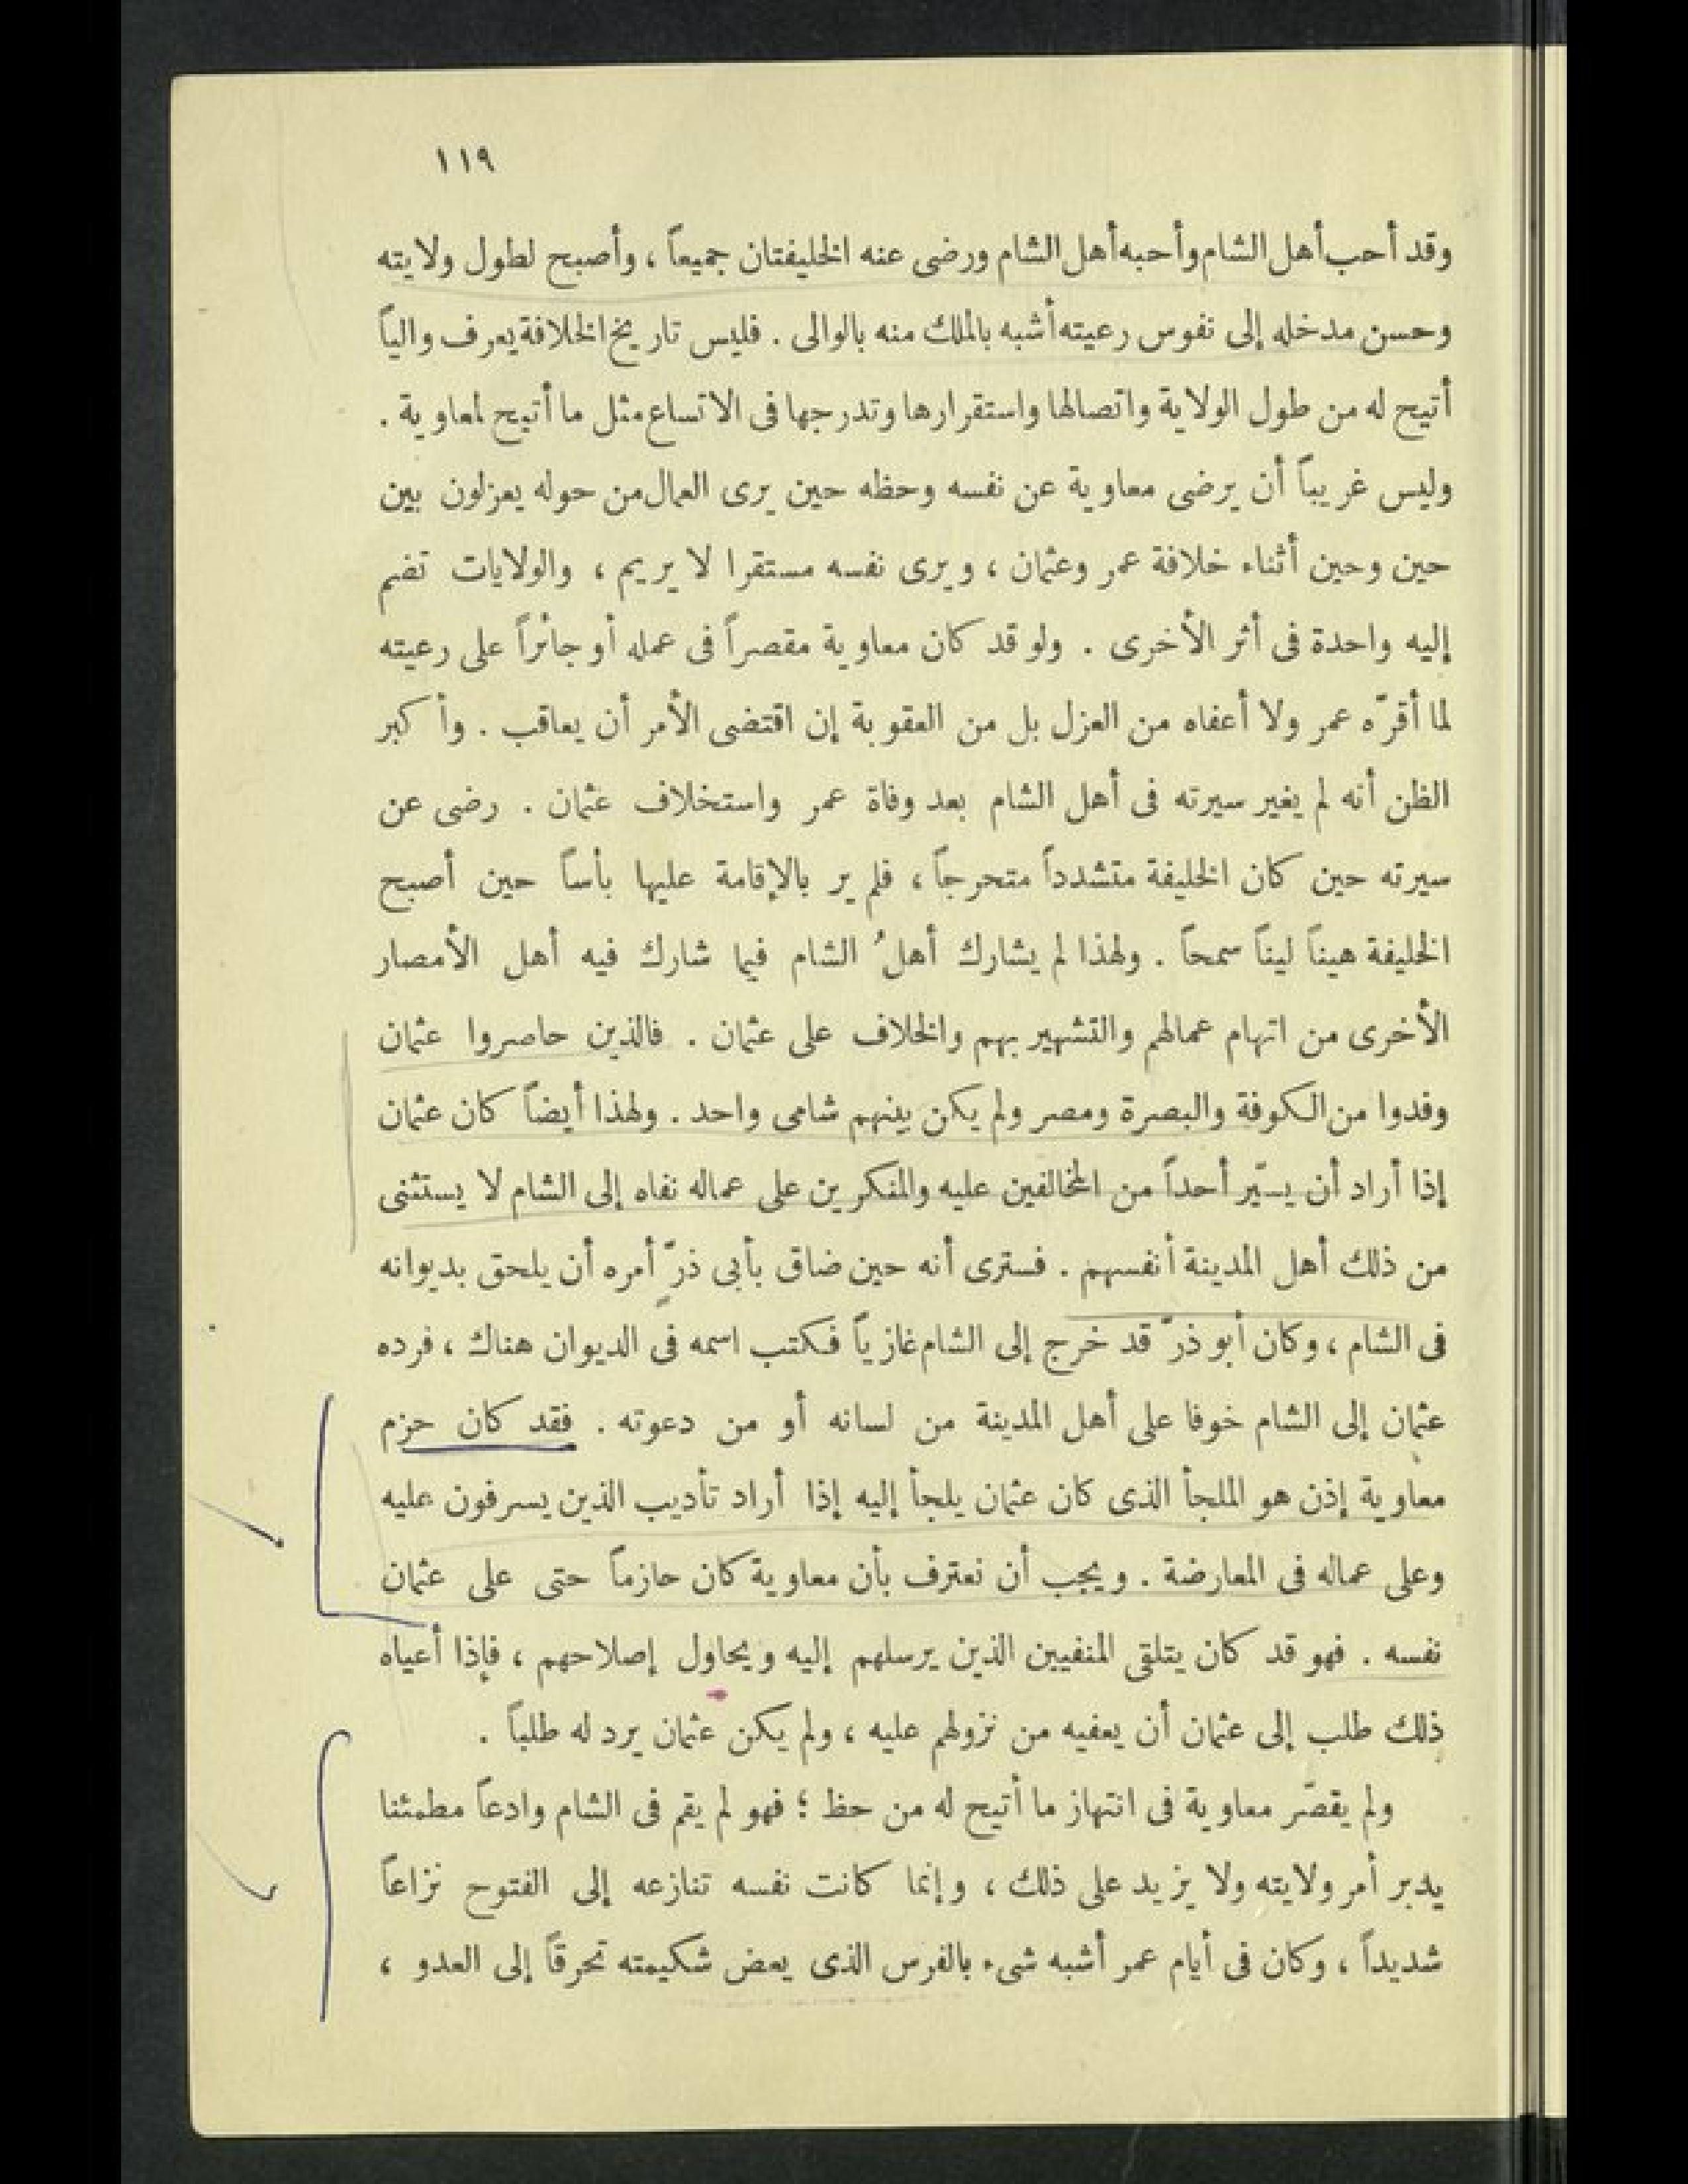 ١١٩
وقد أحب أهل الشام وأحبه أهل الشام ورضى عنه الخليفتان جميعاً ، وأصبح لطول ولايته
وحسن مدخله إلى نفوس رعيته أشبه بالملك منه بالوالى . فليس تاريخ الخلافة يعرف والياً
أتيح له من طول الولاية واتصالها واستقرارها وتدرجها فى الاتساع مثل ما أتيح لمعاوية .
وليس غريباً أن يرضى معاوية عن نفسه وحظه حين يرى العمال من حوله يعزلون بين
حين وحين أثناء خلافة عمر وعثمان ، ويرى نفسه مستقرا لا يريم ، والولايات تضم
إليه واحدة فى أثر الأخرى . ولو قد كان معاوية مقصراً فى عمله أو جائراً على رعيته
لما أقرّه عمر ولا أعفاه من العزل بل من العقوبة إن اقتضى الأمر أن يعاقب . وأكبر
الظن أنه لم يغير سيرته فى أهل الشام بعد وفاة عمر واستخلاف عثمان . رضى عن
سيرته حين كان الخليفة متشدداً متحرجاً ، فلم ير بالإقامة عليها بأساً حين أصبح
الخليفة هيناً ليناً سمحاً . ولهذا لم يشارك أهلُ الشام فيما شارك فيه أهل الأمصار
الأخرى من اتهام عمالهم والتشهير بهم والخلاف على عثمان . فالذين حاصروا عثمان
وفدوا من الكوفة والبصرة ومصر ولم يكن بينهم شامى واحد . ولهذا أيضاً كان عثمان
إذا أراد أن يسيّر أحداً من المخالفين عليه والمنكرين على عماله نفاه إلى الشام لا يستثنى
من ذلك أهل المدينة أنفسهم . فسترى أنه حين ضاق بأبى ذرّ أمره أن يلحق بديوانه
فى الشام ، وكان أبو ذرّ قد خرج إلى الشام غازياً فكتب اسمه فى الديوان هناك ، فرده
عثمان إلى الشام خوفا على أهل المدينة من لسانه أو من دعوته . فقد كان حزم
معاوية إذن هو الملجأ الذى كان عثمان يلجأ إليه إذا أراد تأديب الذين يسرفون عليه
وعلى عماله فى المعارضة . ويجب أن نعترف بأن معاوية كان حازماً حتى على عثمان
نفسه . فهو قد كان يتلقى المنفيين الذين يرسلهم إليه ويحاول إصلاحهم ، فإذا أعياه
ذلك طلب إلى عثمان أن يعفيه من نزولهم عليه ، ولم يكن عثمان يرد له طلباً .
ولم يقصّر معاوية فى انتهاز ما أتيح له من حظ ؛ فهو لم يقم فى الشام وادعاً مطمئنا
يدبر أمر ولايته ولا يزيد على ذلك ، وإنما كانت نفسه تنازعه إلى الفتوح نزاعاً
شديداً ، وكان فى أيام عمر أشبه شىء بالفرس الذى يعض شكيمته تحرقاً إلى العدو ،